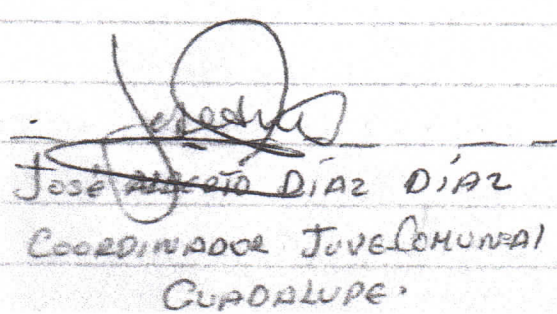 José Díaz Díaz
COORDINADOR JUVECOMUNAl
GUADALUPE.